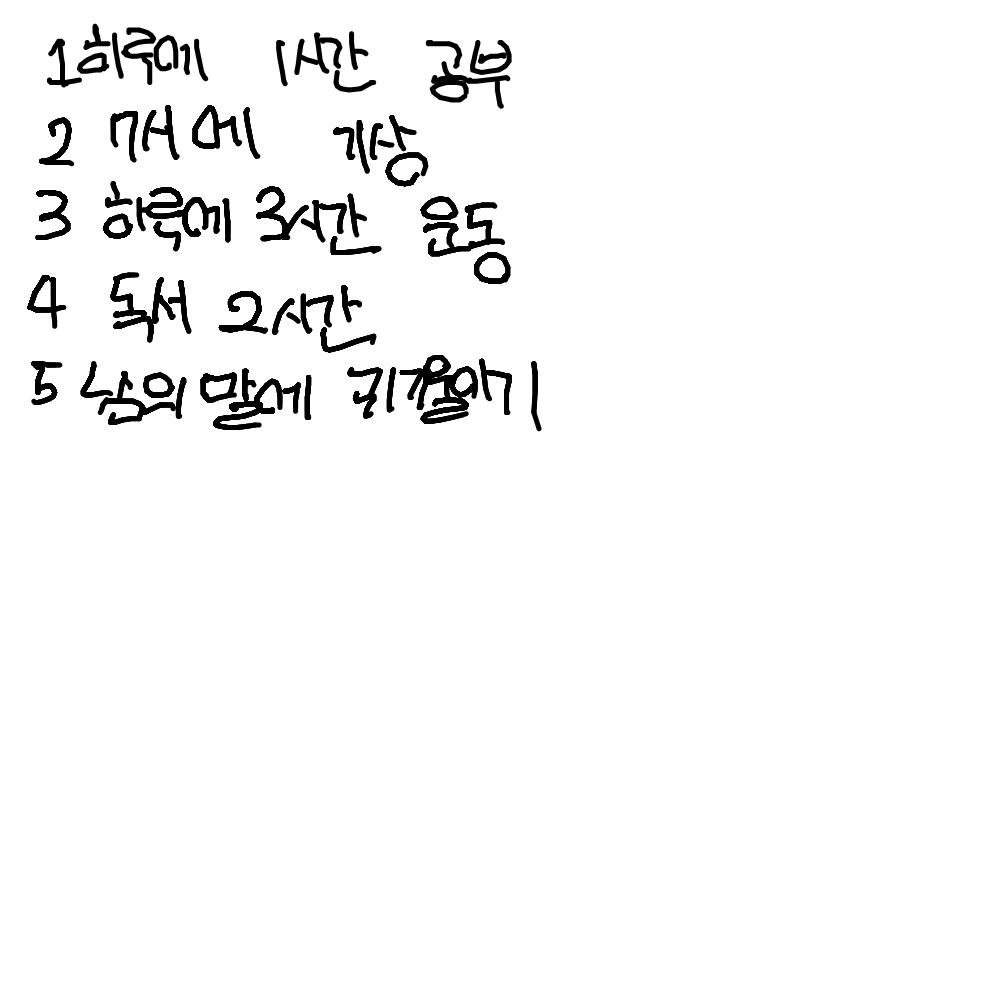 1하루에 1시간 공부
2 7시에 기상
3 하루에 3시간 운동
4 독서 2시간
5 남의 말에 귀 기울이기